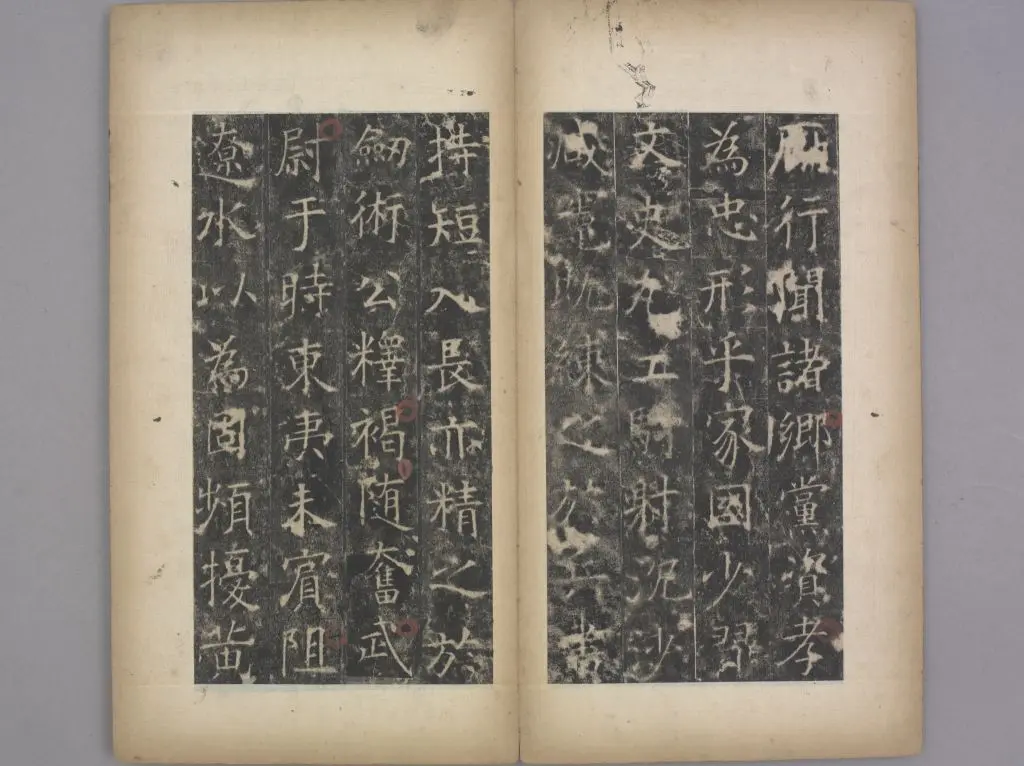 厲行聞諸鄉黨資孝
為忠形乎家國少習
文史尤工騎射泥沙
既練之於兵書
持短入長亦精之於
劒術公釋褐随奮武
尉于時東夷未賓阻
遼水以為固頻擾